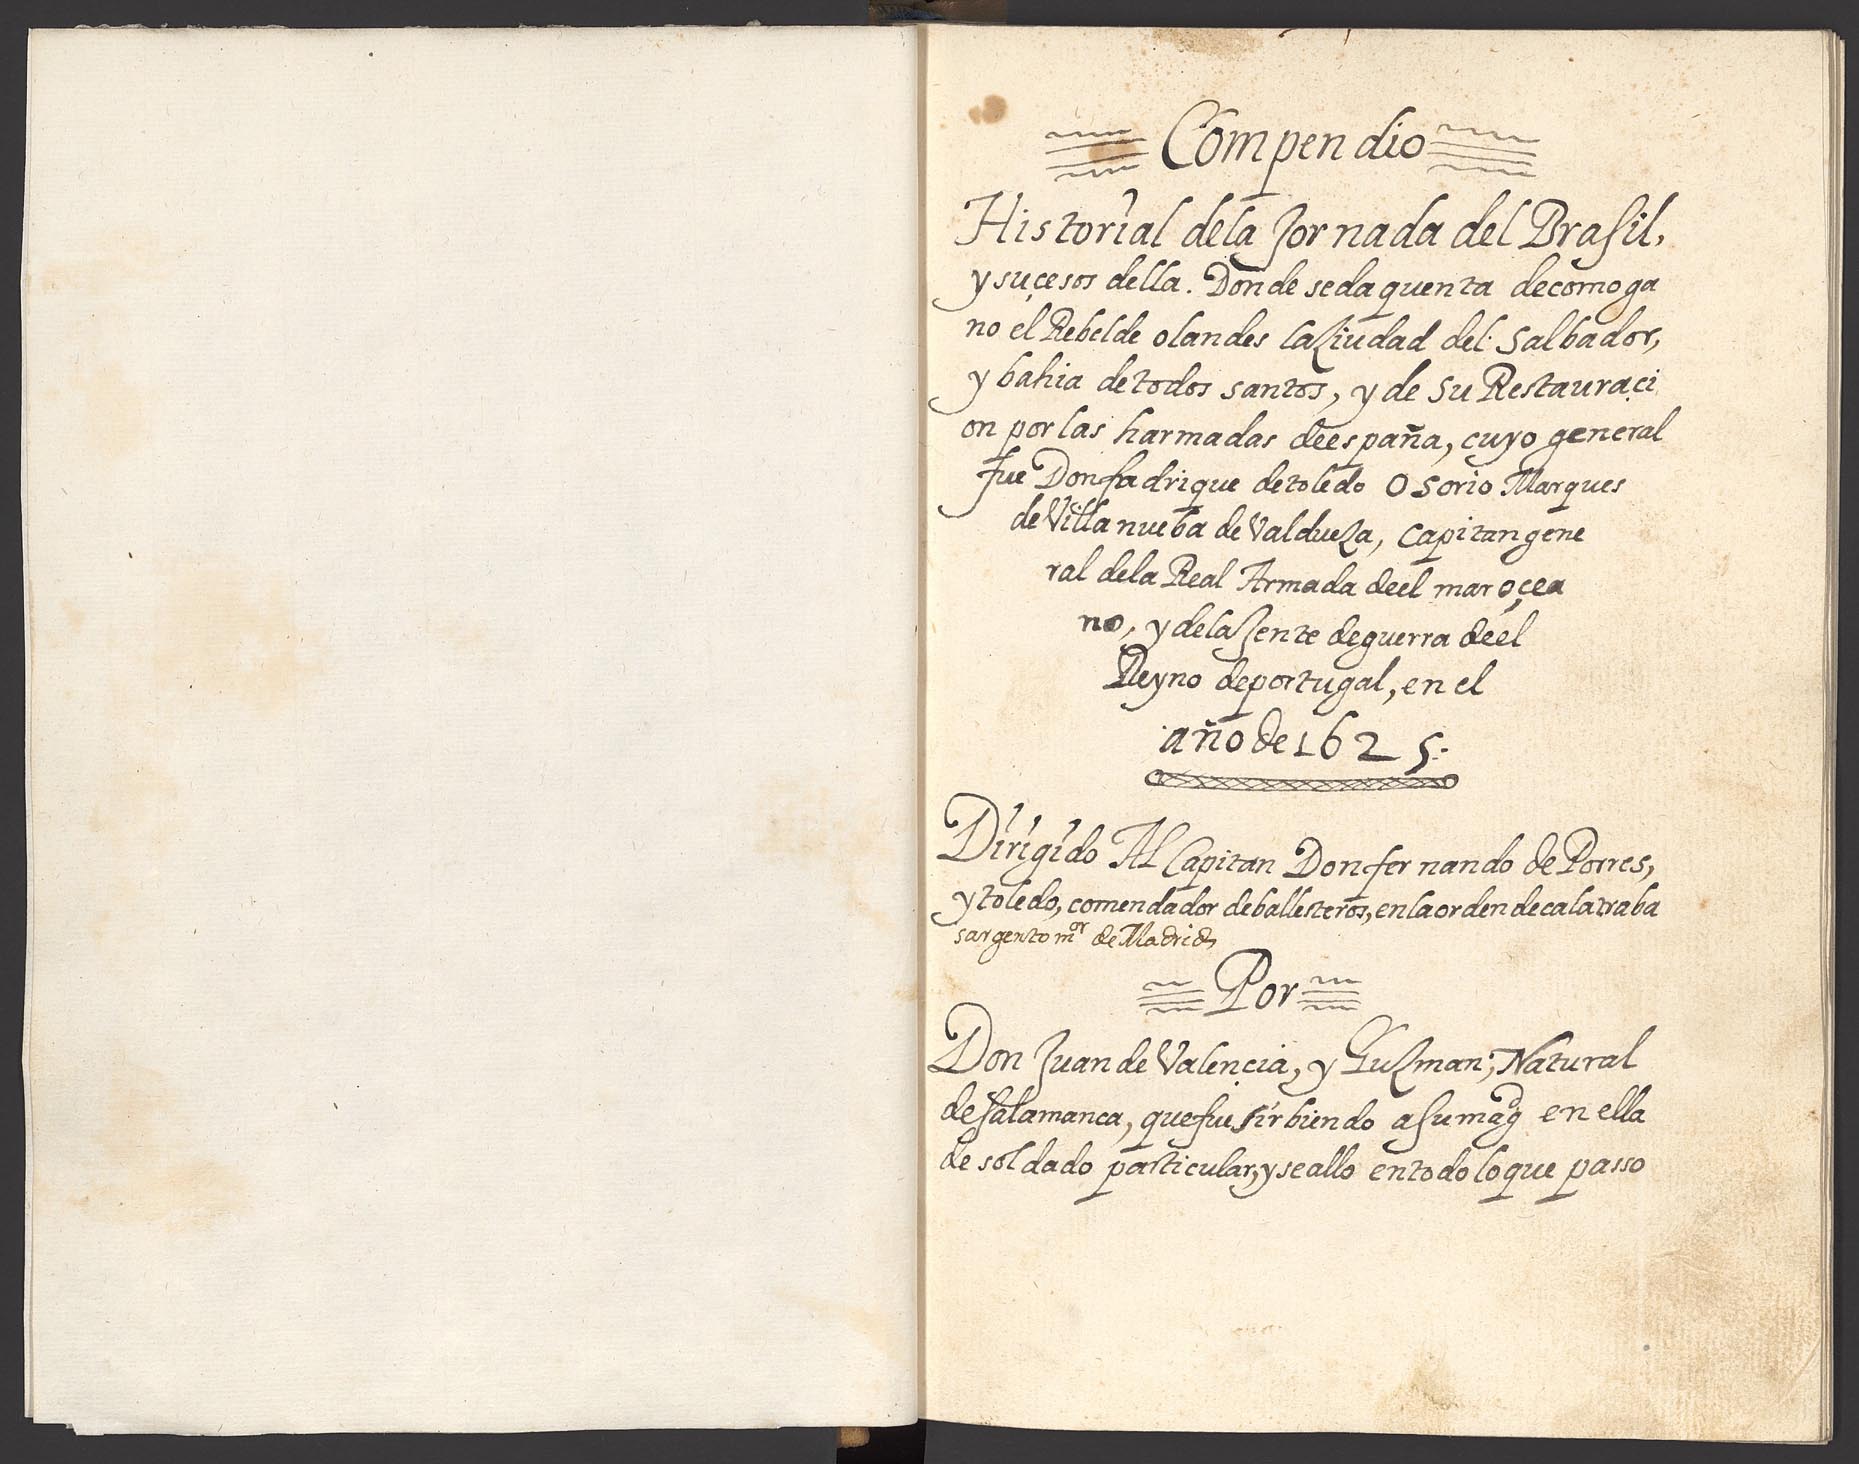 Compendio
Historial dela Jornada del Brasil,
y suçesos della. Donde se da quenta de como ga
no el Rebelde olandes la Ziudad del Salbador,
y bahia de todos santos, y de su Restauraçi
on por las harmadas de españa, cuyo general
fue Don fadrique de toledo Osorio Marques
de Villanueba de Valdueza, Capitan gene
ral dela Real Armada de el mar oçea
no, y dela Jente de guerra de el
Reyno de portugal, en el
año de 1625.
Dirigido Al Capitan Don fernando de Porres,
y toledo, comendador de ballesteros, en la orden de calatraba
sargento mor de Madrid
Por
Don Juan de Valençia, y Guzman; Natural
de salamanca, que fue sirbiendo a su magd en ella
de soldado particular, y se allo en todo lo que passo